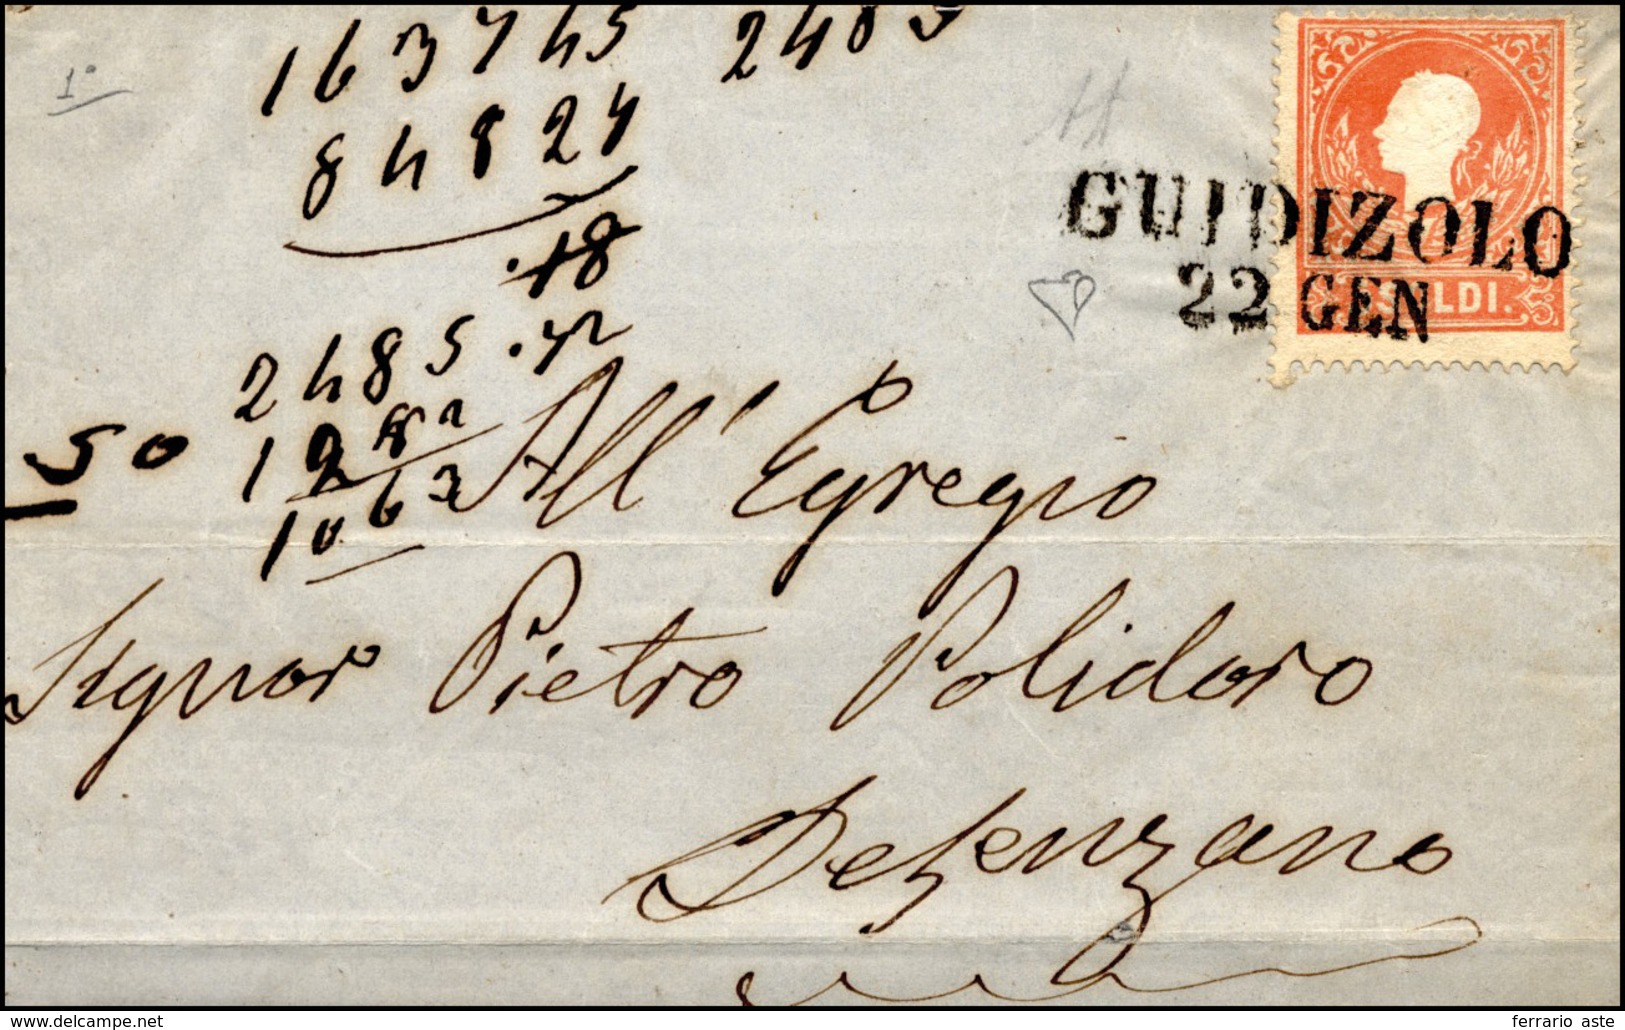 1°
163745 2485
84824
GUIDIZOLO
22 GEN
SOLDI.
2485
50
1063
All' Egregio
Signor Pietro Polidoro
Desenzano
www.delcampe.net
ferrario aste